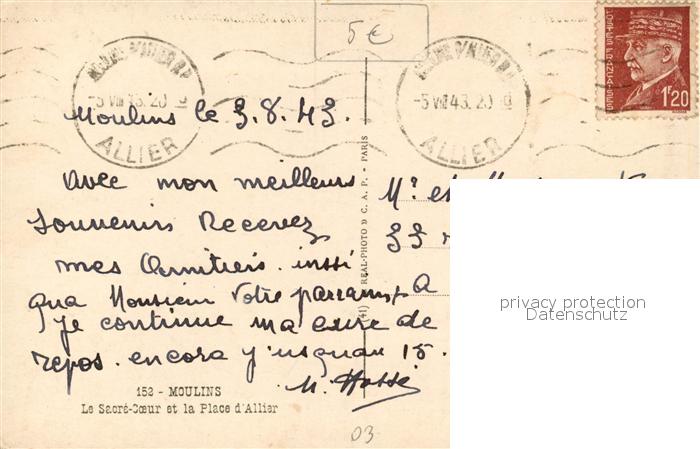 5€
MOULINS S/ALLIER R.P.
-5 VIII 43. 20
ALLIER
MOULINS S/ALLIER R.P.
-5 VIII 43. 20
ALLIER
1F20
Moulins le 3.8.43.
Avec mon meilleurs
Souvenirs Recevez
mes Amitiers. inssi
qua Monsieur Votre parramt
Je continue ma cure de
repos. encora j'usquau 15.
152 - MOULINS
Le Sacré-Cœur et la Place d'Allier
(41) REAL-PHOTO D C. A. P. - PARIS
Mr et
33
A
privacy protection
Datenschutz
03